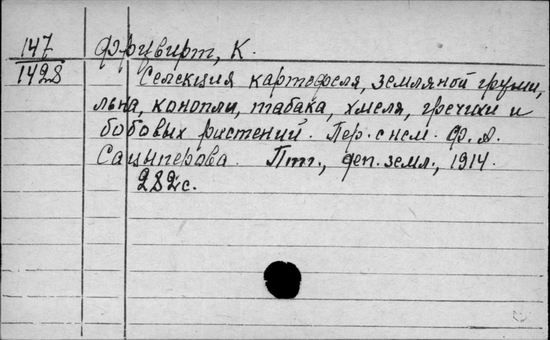 147
1428
Фрувирт, К.
Селекция картофеля, земляной груши,
льна, конопли, табака, хмеля, гречихи и
бобовых растений. Пер. с нем. Ф. А.
Сацыперова. Птг., деп. земл., 1914.
282с.